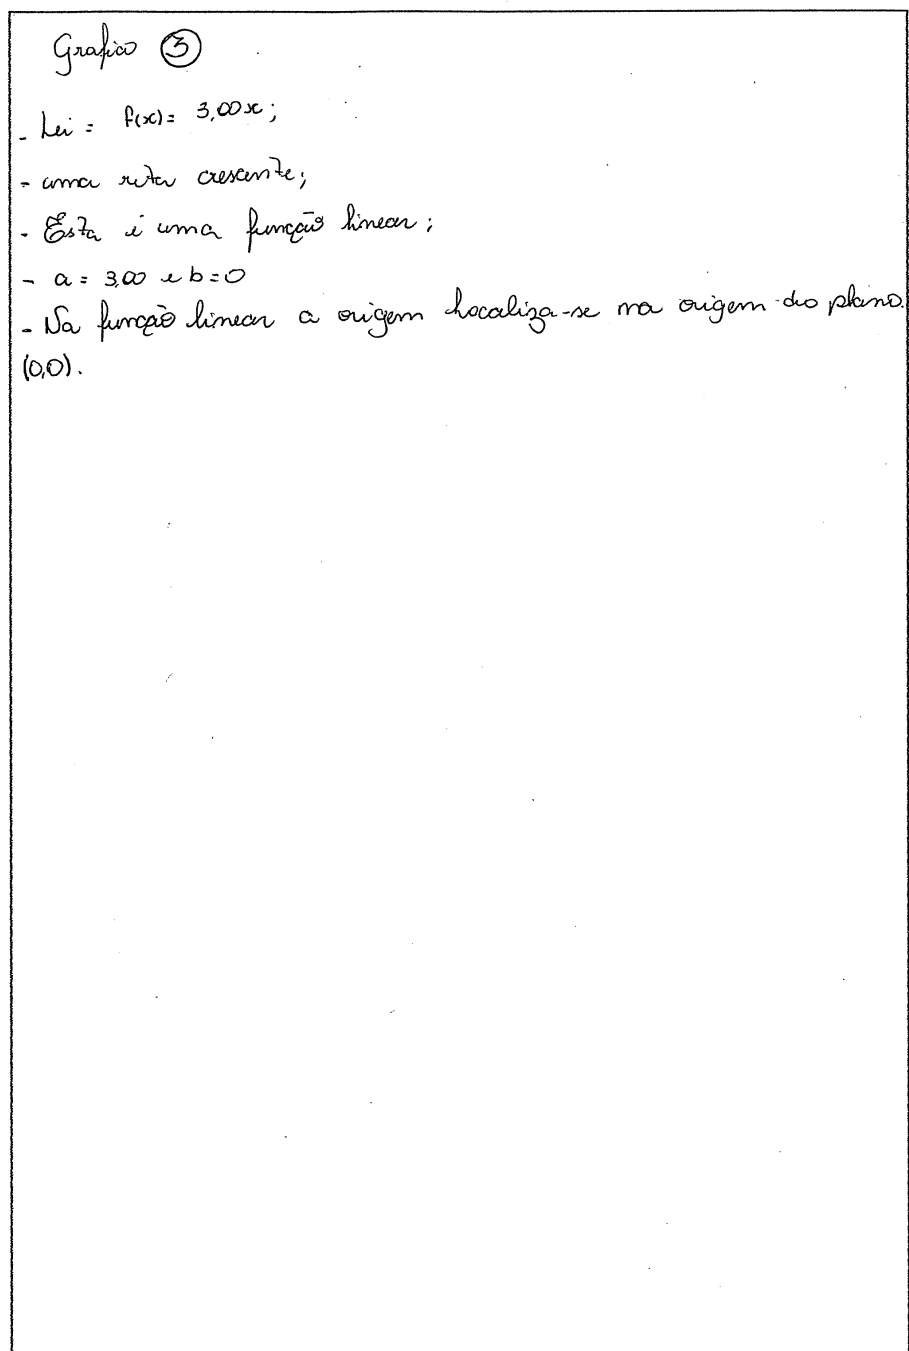 Grafico ③
- Lei = f(x) = 3,00x;
- uma reta crescente;
- Esta é uma função linear;
- a = 3,00 e b = 0
- Na função linear a origem localiza-se na origem do plano.
(0,0).